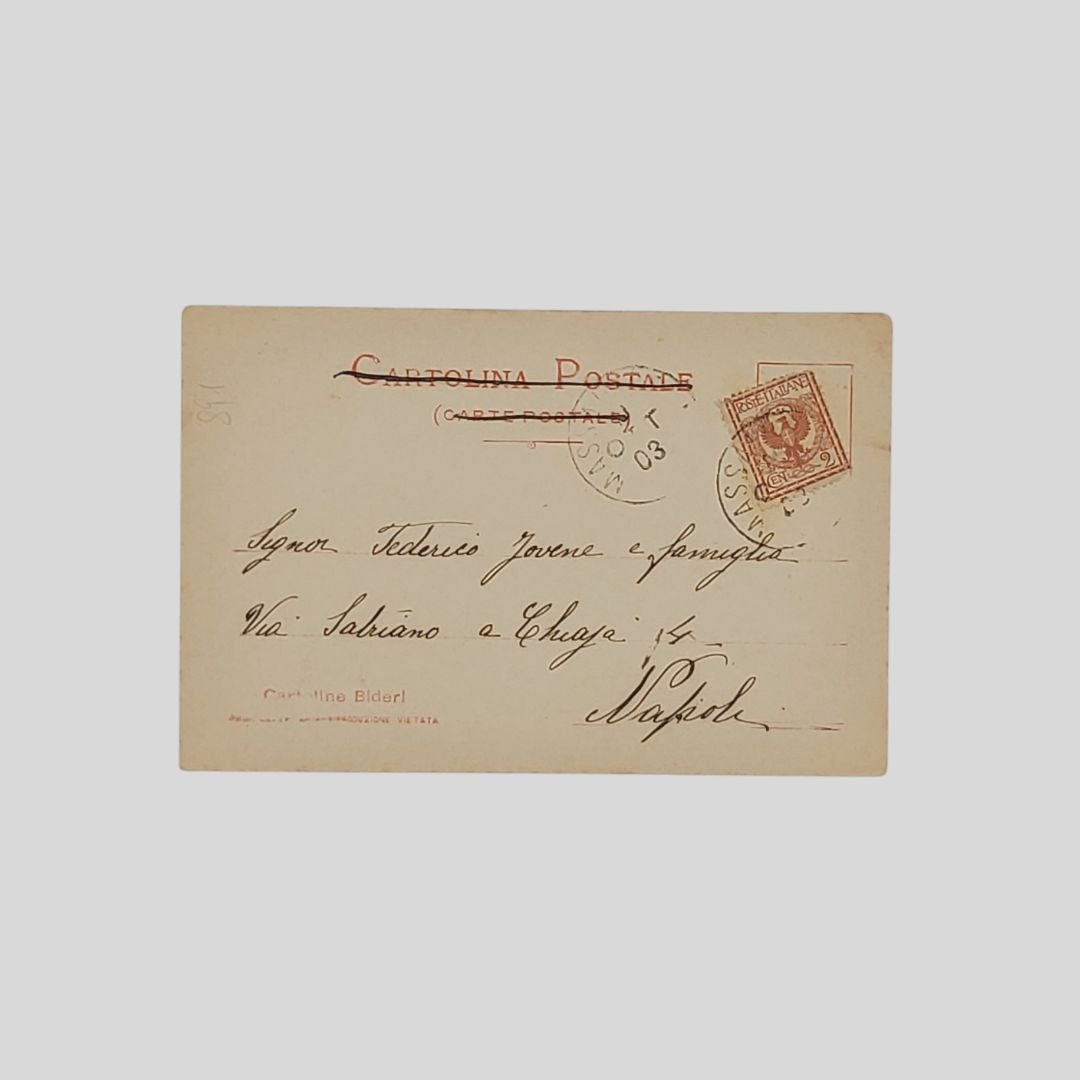 CARTOLINA POSTALE
(CARTE POSTALE)
POSTE ITALIANE
CENT 2
MASS
OTT
03
MASS
03
Signor Federico Jovene e famiglia
Via Satriano a Chiaja 14
Napoli
Cartoline Bideri
RIPRODUZIONE VIETATA